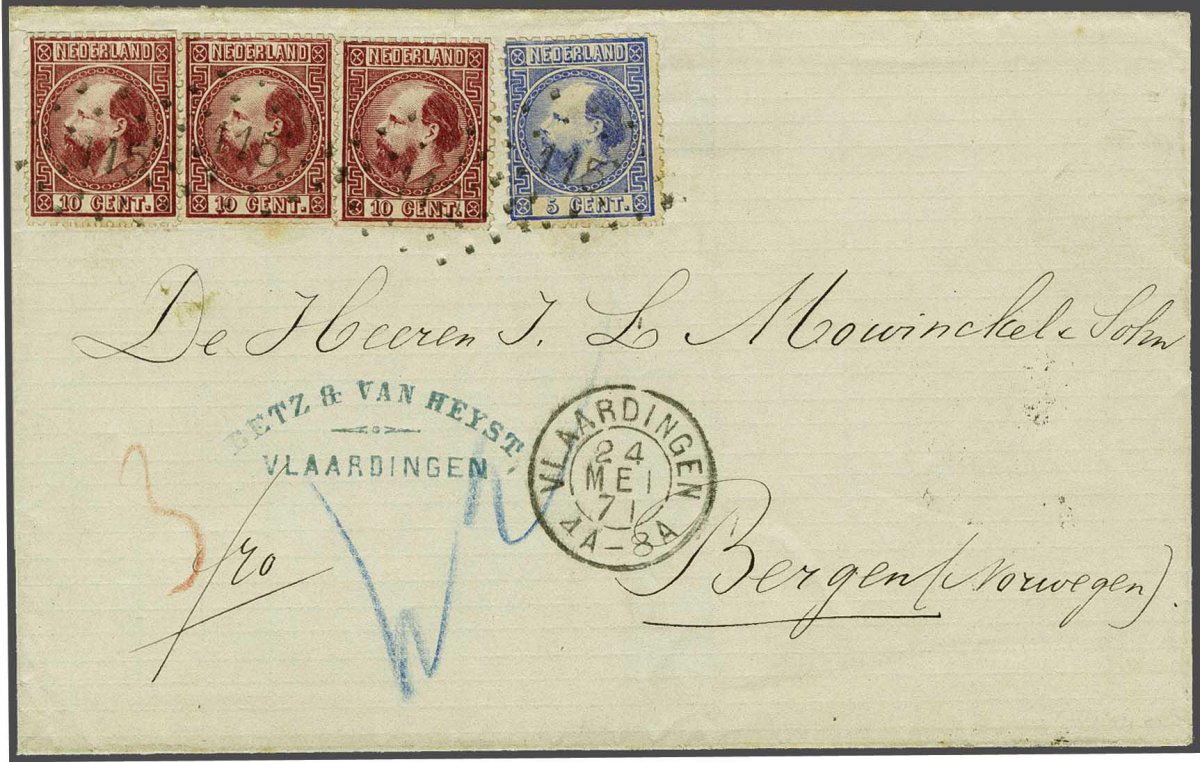 NEDERLAND NEDERLAND NEDERLAND NEDERLAND
115 115 115
10 CENT. 10 CENT. 10 CENT. 5 CENT.
De Heeren J. L. Mowinckel & Sohn
BETZ & VAN HEYST.
VLAARDINGEN
VLAARDINGEN
24
MEI
71
4A-8A
3
fro
Bergen (Norwegen).